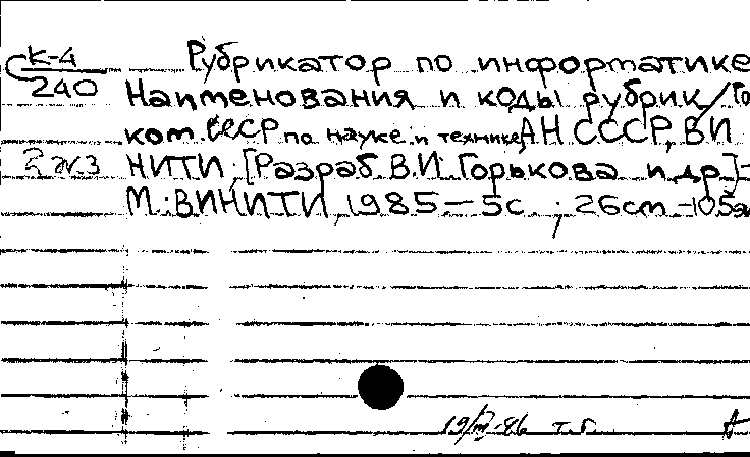 К-4 Рубрикатор по информатике
240 Наименования и коды рубрик/Го
ком. СССР по науке и технике, АН СССР, ВИ
2 экз НИТИ; [Разраб. В.И. Горькова и др.]-
М.: ВИНИТИ, 1985.— 5с ; 26см -105э
19/III-86 Т.Г.